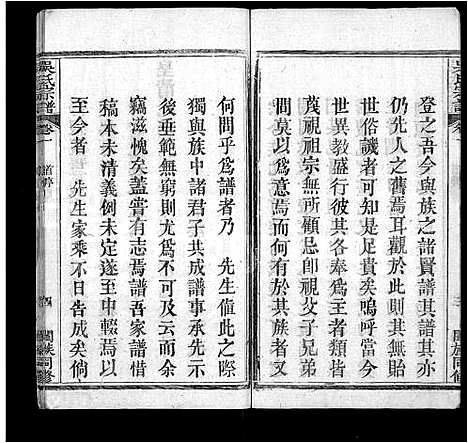 吳氏宗譜
登之吾今與族之諸賢譜其譜亦
仍先人之舊焉耳觀於此其無貽
世者可以知是足貴矣嗚呼當今
世異教盛行彼其各奉爲主者類皆
蔑視祖宗無所顧忌卽視父子兄弟
間莫以爲異焉而於其族者又
何間乎爲譜者乃 先生值此之際
獨與族中諸君子共成譜事承示於
後垂範無窮則尤爲不可及云而余
竊滋愧矣蓋嘗有志焉譜吾家譜
稿本未清義例未定遂至中輟焉以
至今者 先生家乘不日告成矣倘
吳氏宗譜
卷一
首序
四
闔族同修